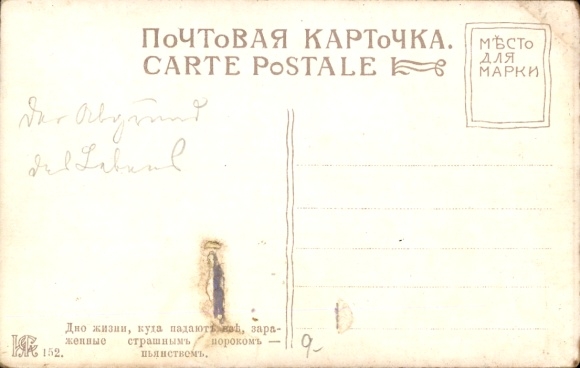 ПОЧТОВАЯ КАРТОЧКА.
CARTE POSTALE
МѢСТО
ДЛЯ
МАРКИ
Der Abgrund
des Lebens
Дно жизни, куда падаютъ всѣ, зара-
женные страшнымъ порокомъ —
пьянствомъ.
152.
9-